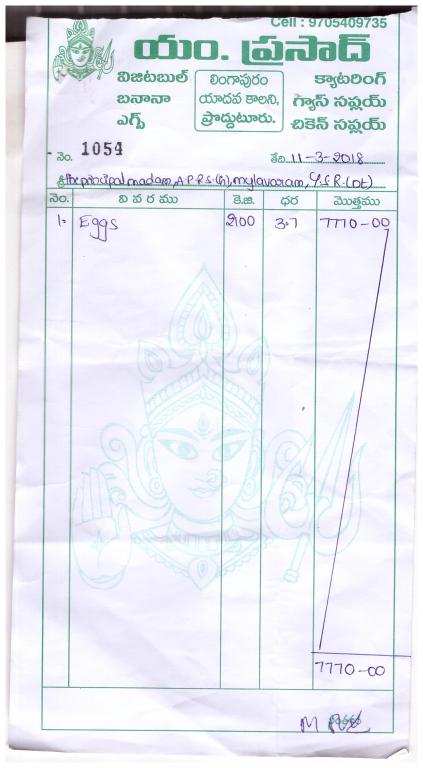 Cell : 9705409735
యం. ప్రసాద్
విజిటబుల్
బనానా
ఎగ్స్
లింగాపురం
యాదవ కాలని,
ప్రొద్దుటూరు.
క్యాటరింగ్
గ్యాస్ సప్లయ్
చికెన్ సప్లయ్
నెం. 1054 తేది 11-3-2018
శ్రీ the principal madam, A.P.R.S.(G), mylavaram, Y.S.R.(Dt)
నెం. వివరము కె.జి. ధర మొత్తము
1. Eggs 2100 3.7 7770-00
7770-00
M